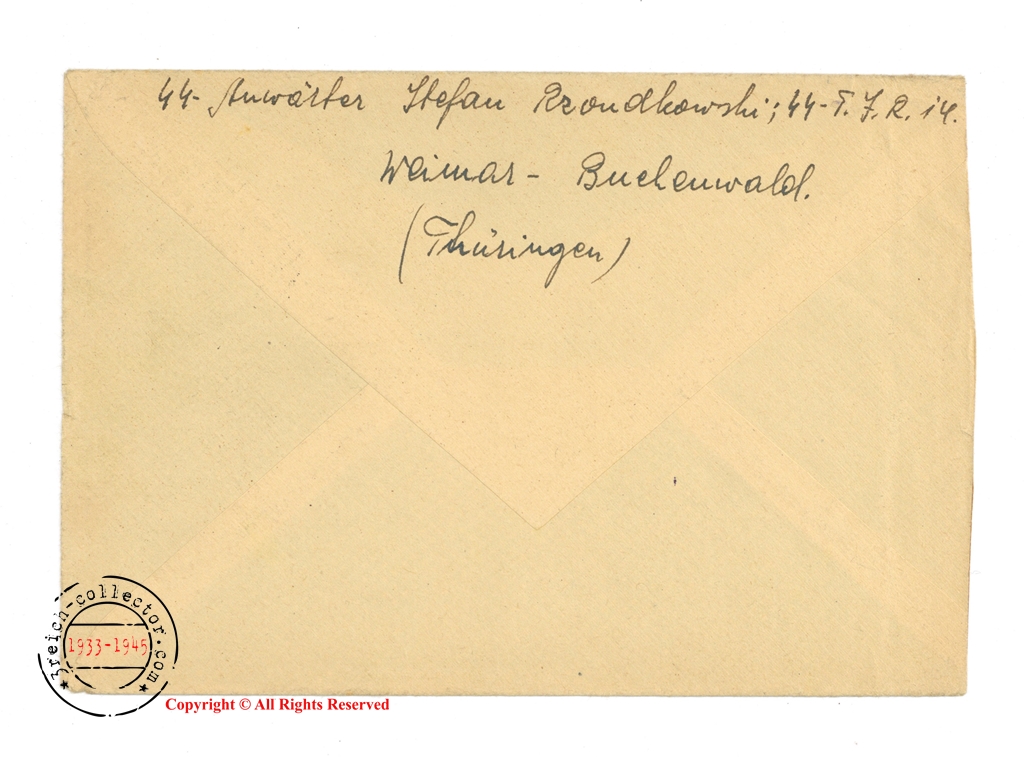 44- Anwärter Stefan Rzondkowski; 44-T.J.R. 14.
Weimar- Buchenwald.
(Thüringen)
3reich-collector.com
1933-1945
Copyright © All Rights Reserved